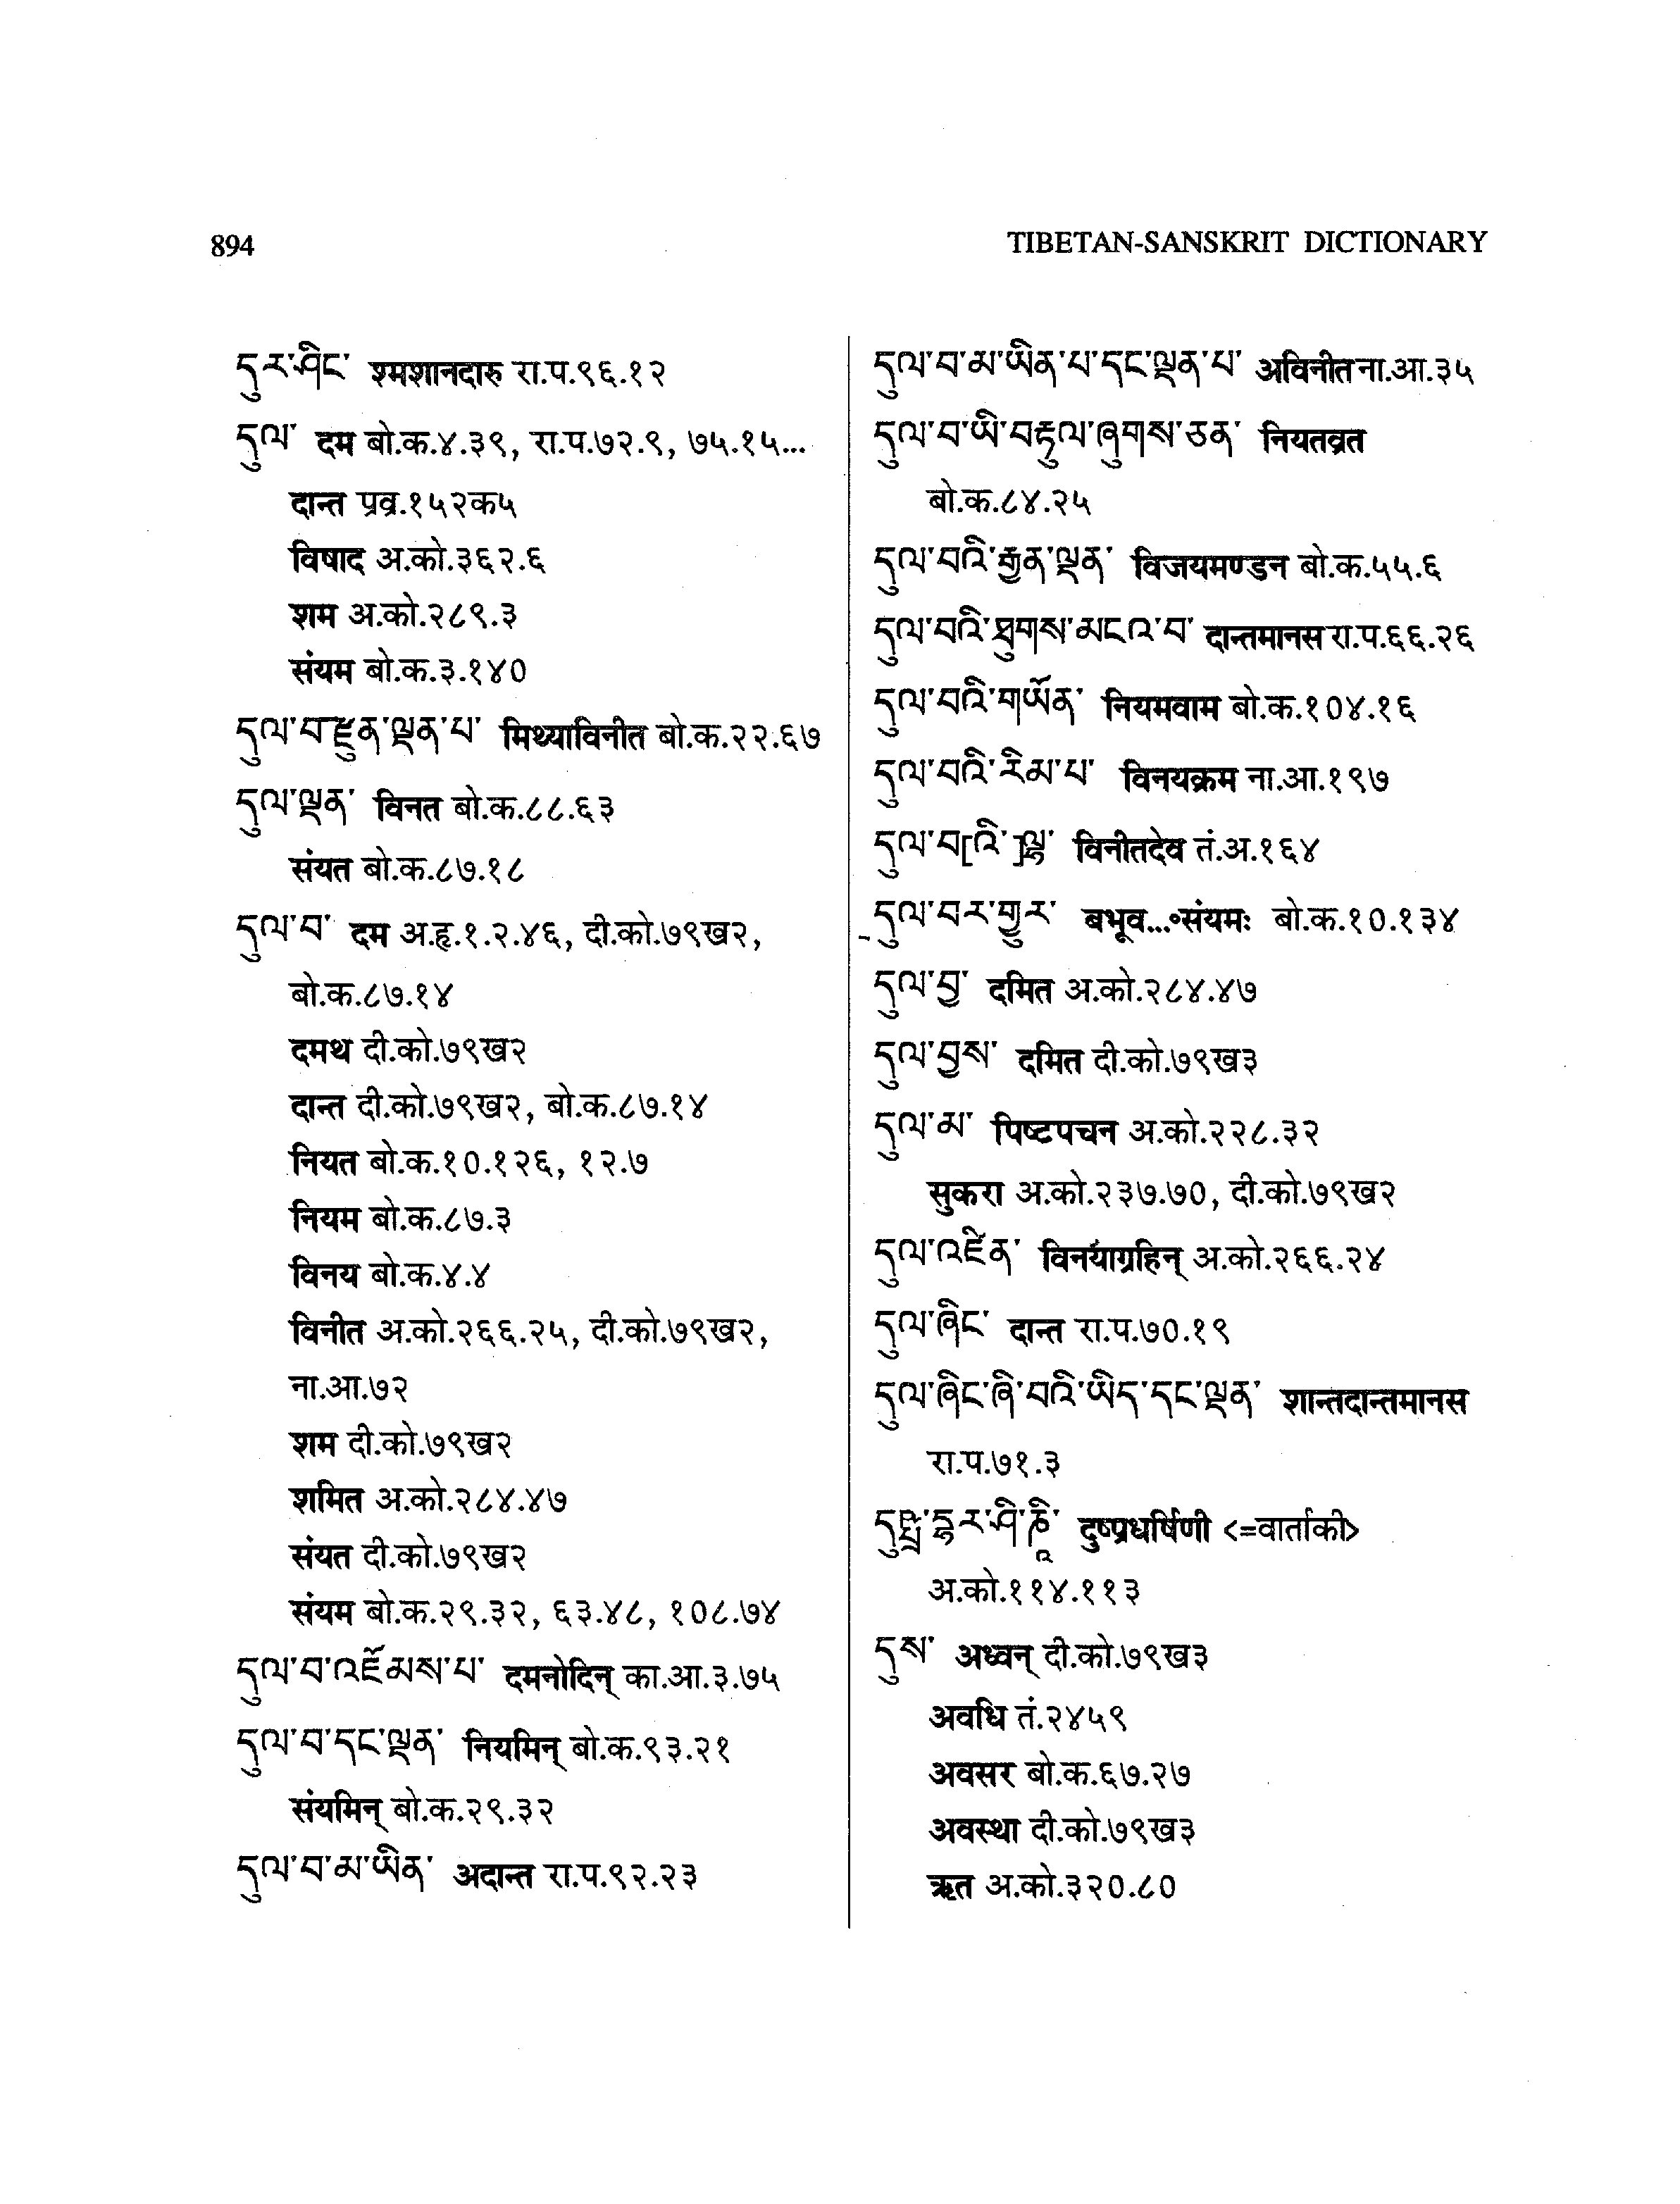 894
TIBETAN-SANSKRIT DICTIONARY
དུར་ཤིང་ श्मशानदारु रा.प.९६.१२
དུལ་ दम बो.क.४.३९, रा.प.७२.९, ७५.१५...
दान्त प्रव्र.१५२क५
विषाद अ.को.३६२.६
शम अ.को.२८९.३
संयम बो.क.३.१४०
དུལ་བ་རྫུན་ལྡན་པ་ मिथ्याविनीत बो.क.२२.६७
དུལ་ལྡན་ विनत बो.क.८८.६३
संयत बो.क.८७.१८
དུལ་བ་ दम अ.हृ.१.२.४६, दी.को.७९ख२,
बो.क.८७.१४
दमथ दी.को.७९ख२
दान्त दी.को.७९ख२, बो.क.८७.१४
नियत बो.क.१०.१२६, १२.७
नियम बो.क.८७.३
विनय बो.क.४.४
विनीत अ.को.२६६.२५, दी.को.७९ख२,
ना.आ.७२
शम दी.को.७९ख२
शमित अ.को.२८४.४७
संयत दी.को.७९ख२
संयम बो.क.२९.३२, ६३.४८, १०८.७४
དུལ་བ་འཇོམས་པ་ दमनोदिन् का.आ.३.७५
དུལ་བ་དང་ལྡན་ नियमिन् बो.क.९३.२१
संयमिन् बो.क.२९.३२
དུལ་བ་མ་ཡིན་ अदान्त रा.प.९२.२३
དུལ་བ་མ་ཡིན་པ་དང་ལྡན་པ་ अविनीत ना.आ.३५
དུལ་བ་ཡི་བརྟུལ་ཞུགས་ཅན་ नियतव्रत
बो.क.८४.२५
དུལ་བའི་རྒྱན་ལྡན་ विजयमण्डन बो.क.५५.६
དུལ་བའི་ཐུགས་མངའ་བ་ दान्तमानस रा.प.६६.२६
དུལ་བའི་གཡོན་ नियमवाम बो.क.१०४.१६
དུལ་བའི་རིམ་པ་ विनयक्रम ना.आ.१९७
དུལ་བ[འི་]ལྷ་ विनीतदेव तं.अ.१६४
དུལ་བར་གྱུར་ बभूव...॰संयमः बो.क.१०.१३४
དུལ་བྱ་ दमित अ.को.२८४.४७
དུལ་བྱས་ दमित दी.को.७९ख३
དུལ་མ་ पिष्टपचन अ.को.२२८.३२
सुकरा अ.को.२३७.७०, दी.को.७९ख२
དུལ་འཛིན་ विनयाग्रहिन् अ.को.२६६.२४
དུལ་ཞིང་ दान्त रा.प.७०.१९
དུལ་ཞིང་ཞི་བའི་ཡིད་དང་ལྡན་ शान्तदान्तमानस
रा.प.७१.३
दुष्प्रधर्षिणी <=वार्ताकी>
अ.को.११४.११३
དུས་ अध्वन् दी.को.७९ख३
अवधि तं.२४५९
अवसर बो.क.६७.२७
अवस्था दी.को.७९ख३
ऋत अ.को.३२०.८०